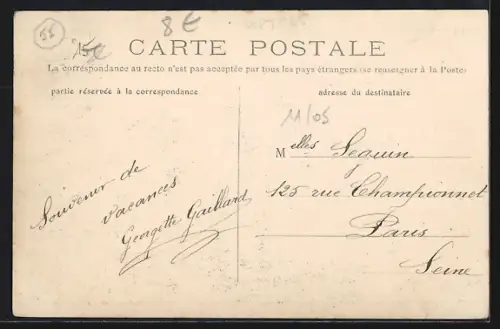 55
15€
8€
CARTE POSTALE
La correspondance au recto n'est pas acceptée par tous les pays étrangers (se renseigner à la Poste)
partie réservée à la correspondance
adresse du destinataire
11/05
Melles Seguin
125 rue Championnet
Paris
Seine
Souvenir de
vacances
Georgette Gaillard